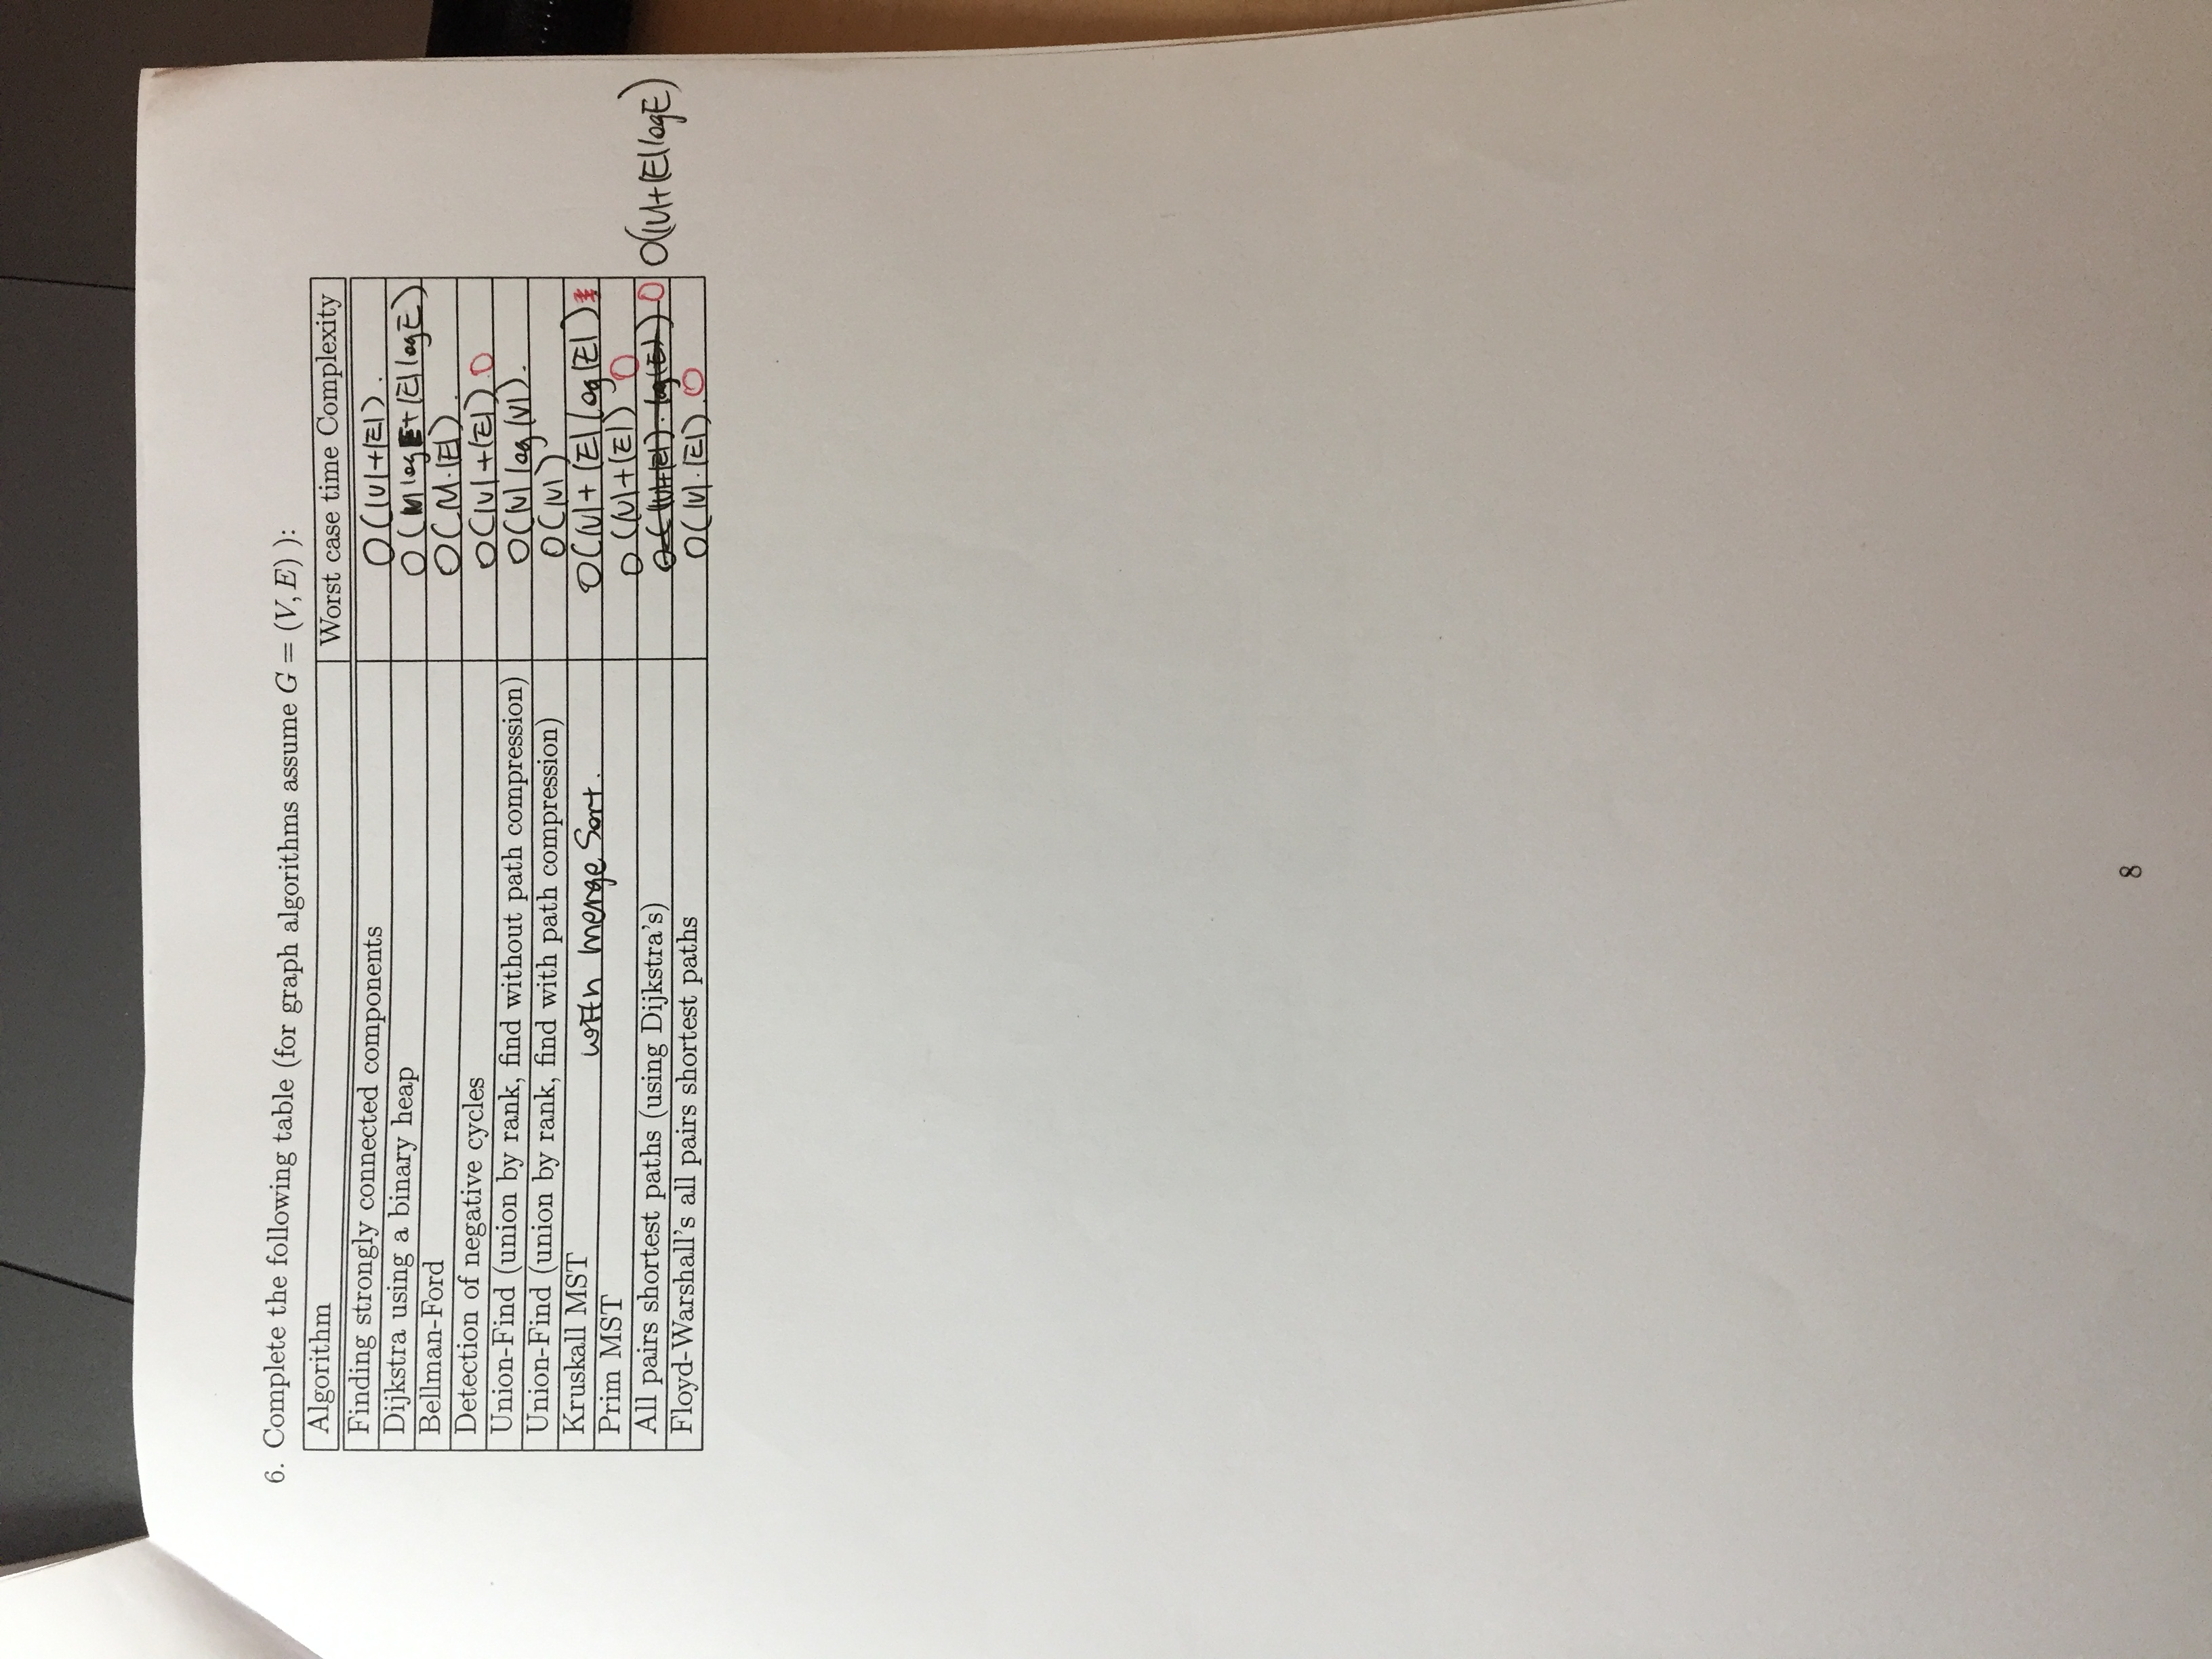 6. Complete the following table (for graph algorithms assume G = (V, E) ):
Algorithm Worst case time Complexity
Finding strongly connected components O(|V|+|E|).
Dijkstra using a binary heap O(|V| log E + |E| log E)
Bellman-Ford O(|V|·|E|).
Detection of negative cycles O(|V|+|E|). 0
Union-Find (union by rank, find without path compression) O(|V| log |V|).
Union-Find (union by rank, find with path compression) O(|V|)
Kruskall MST with merge Sort. O(|V| + |E| log |E|)
Prim MST O(|V|+|E|) 0
All pairs shortest paths (using Dijkstra's) O((|V|+|E|)·log(E)) 0 O(|V|+|E|logE)
Floyd-Warshall's all pairs shortest paths O(|V|·|E|). 0
8